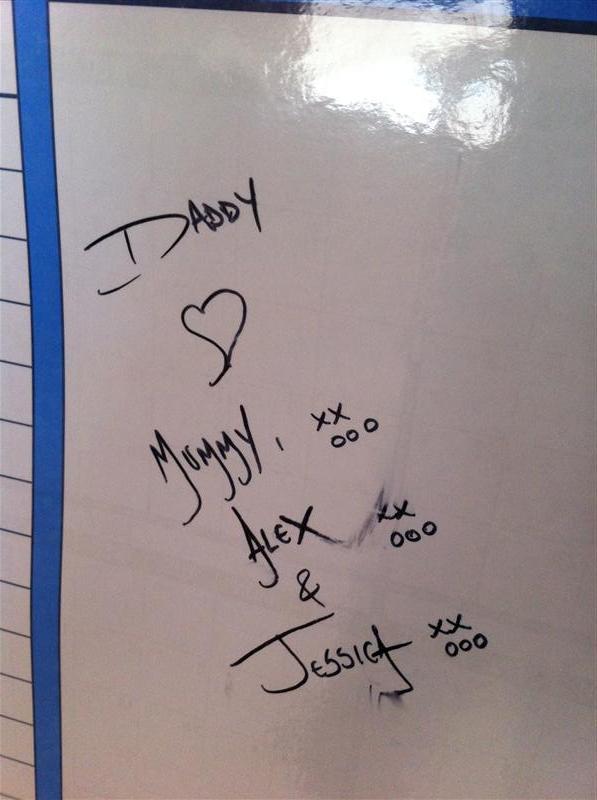 DADDY
♡
MUMMY, xx
ooo
ALEX xx
ooo
&
JESSICA xx
ooo